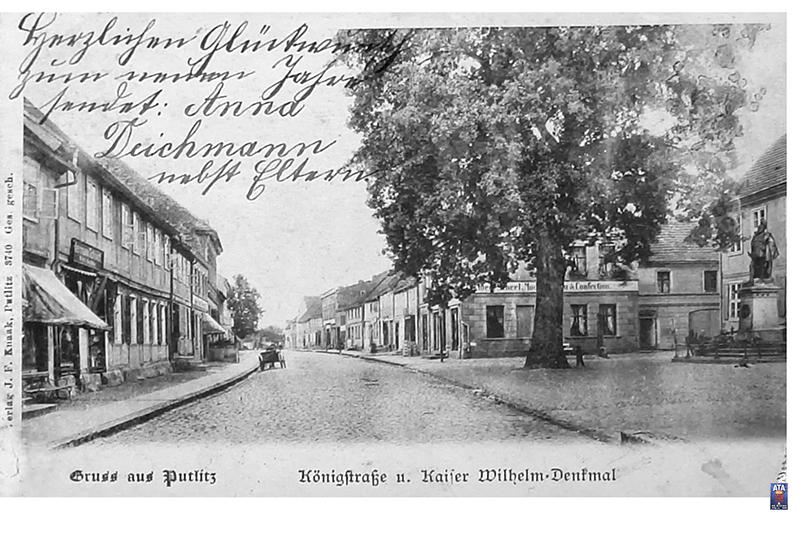 Herzlichen Glückwunsch
zum neuen Jahre
sendet: Anna
Deichmann
nebst Eltern
& Confection.
Verlag J. F. Knaak, Putlitz 3740 Ges. gesch.
Gruss aus Putlitz
Königstraße u. Kaiser Wilhelm-Denkmal
ATA